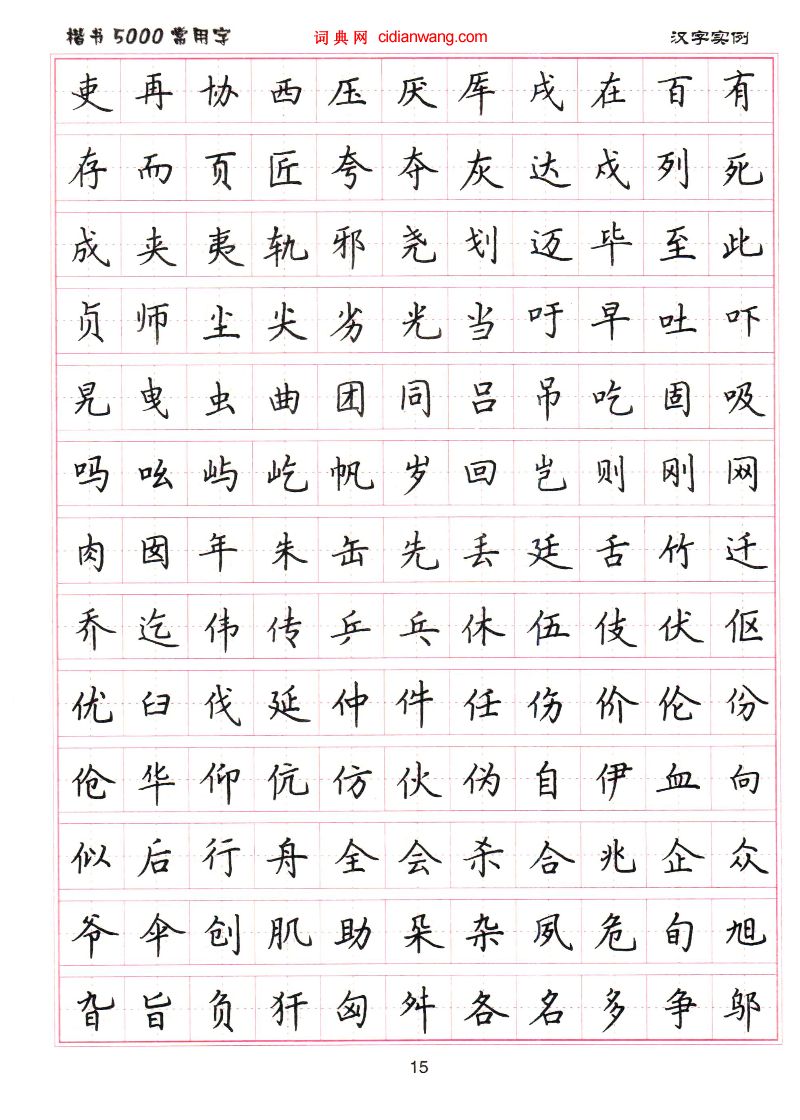 楷书5000常用字 词典网 cidianwang.com 汉字实例
吏再协西压厌厍戌在百有
存而页匠夸夺灰达戍列死
成夹夷轨邪尧划迈毕至此
贞师尘尖劣光当吁早吐吓
晃曳虫曲团同吕吊吃固吸
吗吆屿屹帆岁回岂则刚网
肉囡年朱缶先丢廷舌竹迁
乔迄伟传乒乓休伍伎伏伛
优臼伐延仲件任伤价伦份
伧华仰伉仿伙伪自伊血向
似后行舟全会杀合兆企众
爷伞创肌助朵杂夙危旬旭
旮旨负犴匈舛各名多争邬
15